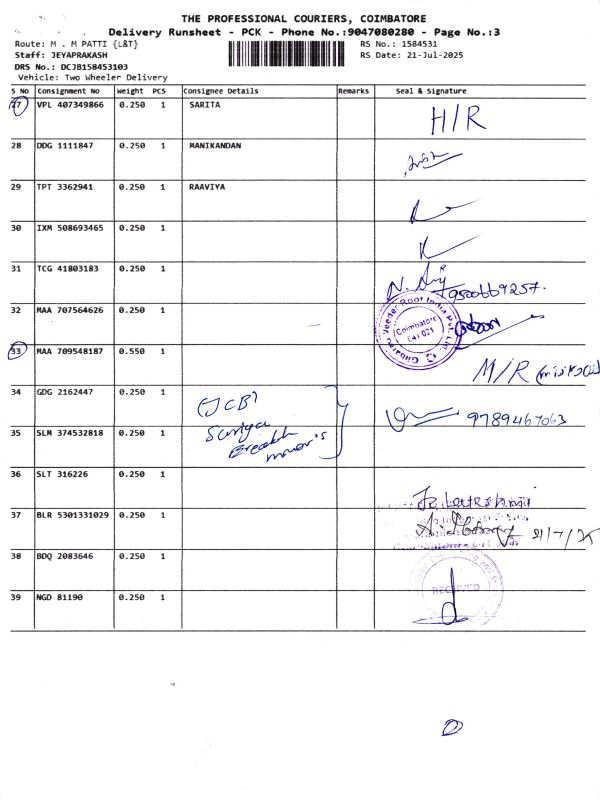 THE PROFESSIONAL COURIERS, COIMBATORE
Delivery Runsheet - PCK - Phone No.:9047080280 - Page No.:3
Route: M . M PATTI {L&T} RS No.: 1584531
Staff: JEYAPRAKASH RS Date: 21-Jul-2025
DRS No.: DCJB158453103
Vehicle: Two Wheeler Delivery
S No Consignment No Weight PCS Consignee Details Remarks Seal & Signature
27 VPL 407349866 0.250 1 SARITA H/R
28 DDG 1111847 0.250 1 MANIKANDAN
29 TPT 3362941 0.250 1 RAAVIYA
30 IXM 508693465 0.250 1
31 TCG 41803183 0.250 1
9500669257.
32 MAA 707564626 0.250 1
Coimbatore
641 021
33 MAA 709548187 0.550 1 M/R
34 GDG 2162447 0.250 1 (JCB)
9789467063
35 SLM 374532818 0.250 1 Suriya
36 SLT 316226 0.250 1
37 BLR 5301331029 0.250 1 21/7/25
38 BDQ 2083646 0.250 1
39 NGD 81190 0.250 1 RECEIVED